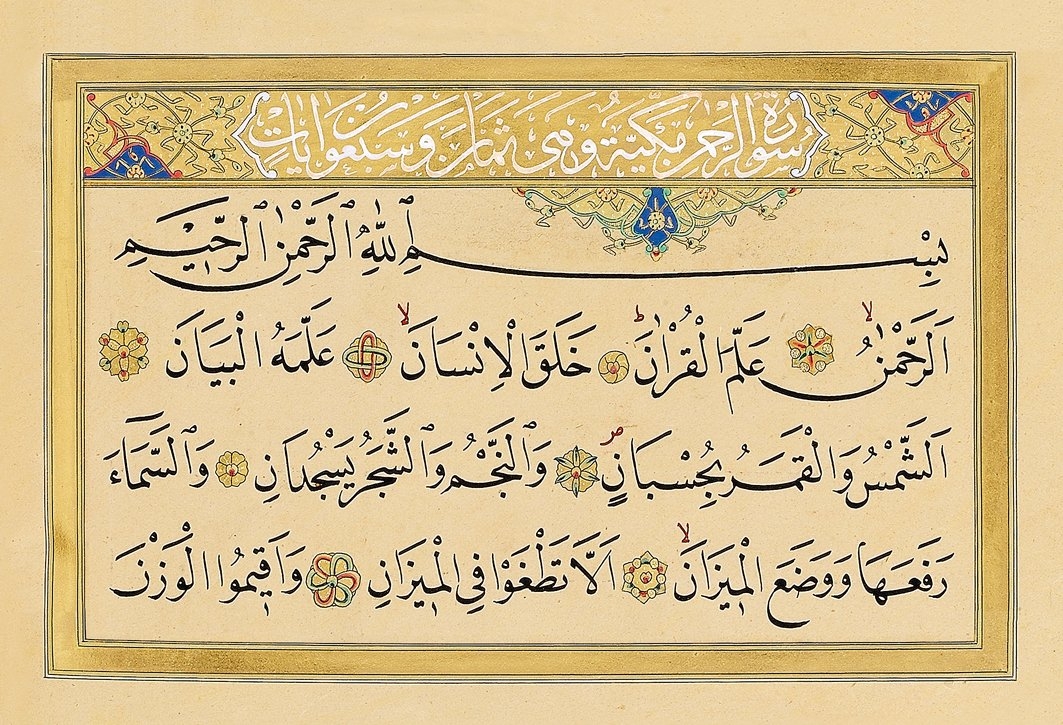 سورة الرحمن مكية وهى ثمان وسبعون ايات
بِسْمِ ٱللّٰهِ ٱلرَّحْمٰنِ ٱلرَّحِيمِ
اَلرَّحْمٰنُ ۙ عَلَّمَ الْقُرْاٰنَ ؕ خَلَقَ الْاِنْسَانَ ۙ عَلَّمَهُ الْبَيَانَ
اَلشَّمْسُ وَالْقَمَرُ بِحُسْبَانٍ ۖ وَٱلنَّجْمُ وَٱلشَّجَرُ يَسْجُدَانِ وَٱلسَّمَاءَ
رَفَعَهَا وَوَضَعَ الْمِيزَانَ ۙ اَلَّا تَطْغَوْا فِي الْمِيزَانِ وَاَقِيمُوا الْوَزْنَ